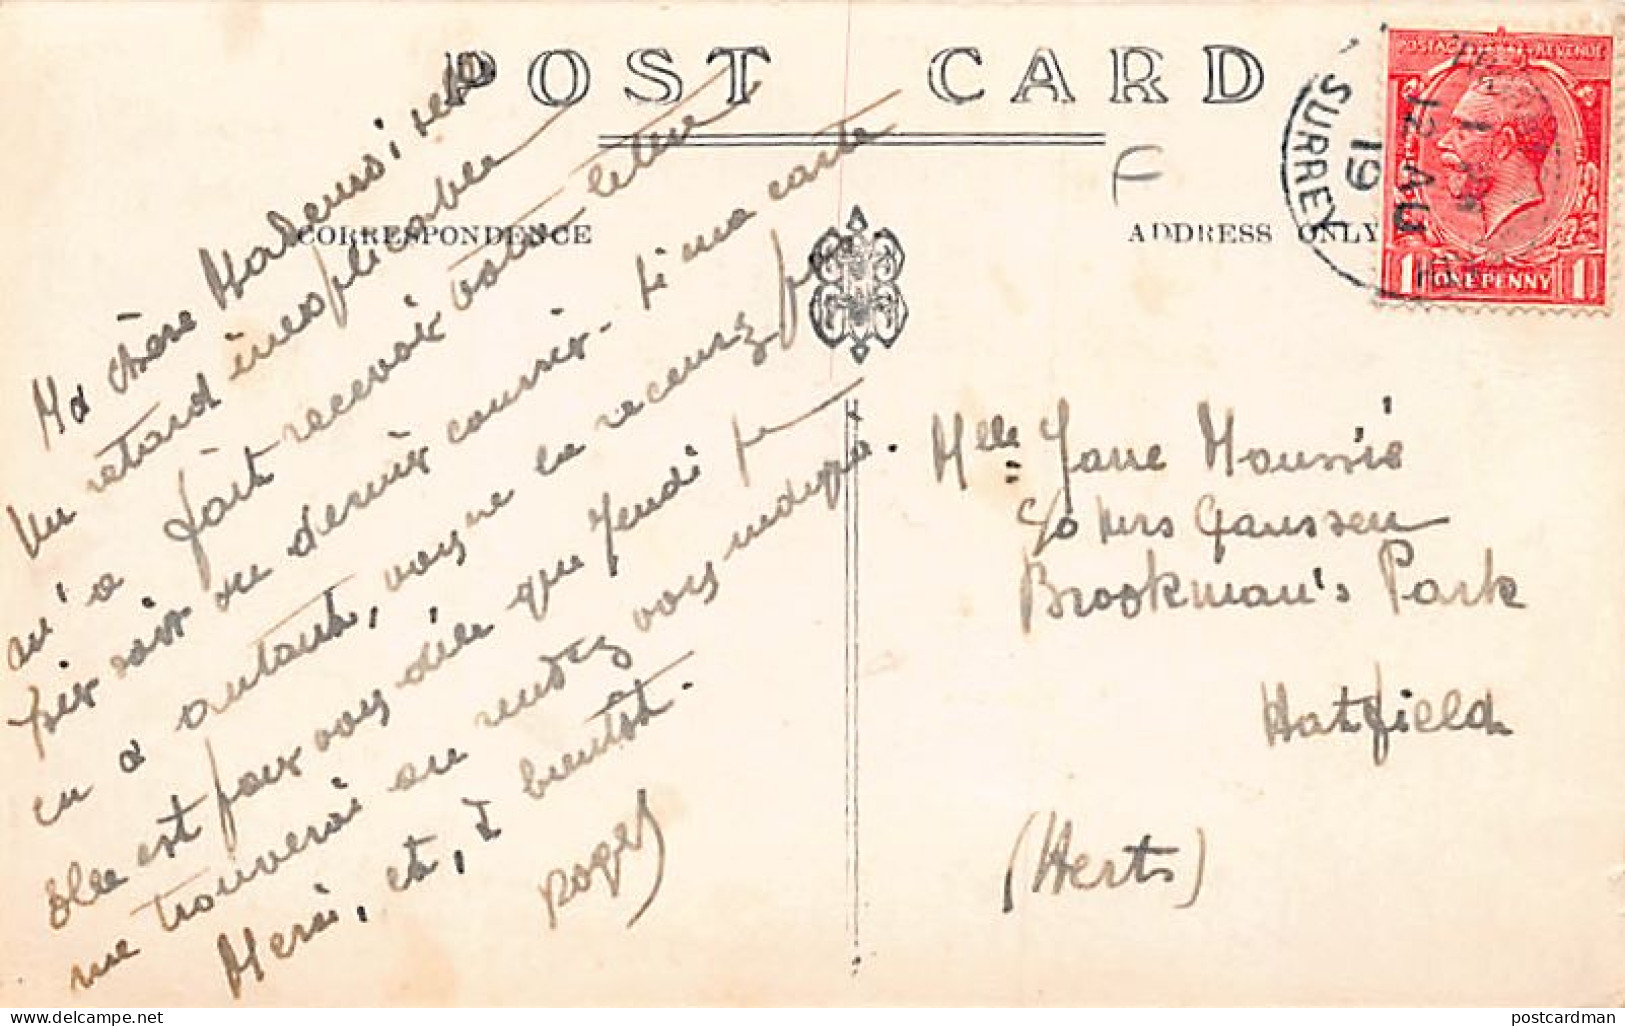 POST CARD
CORRESPONDENCE
ADDRESS ONLY
F
SURREY
19
12 AU
POSTAGE REVENUE
1 ONE PENNY 1
Ma chère Mademoiselle
Un retard inexplicable
m'a fait recevoir votre lettre
hier soir au dernier courrier. Si ma carte
en a autant, vous ne la recevrez pas
Elle est pour vous dire que Jeudi je
me trouverai au rendez vous indiqué.
Merci, et, à bientôt.
Roger
Mlle Jane
c/o Mrs Gaussen
Brookman's Park
Hatfield
(Herts)
postcardman
www.delcampe.net